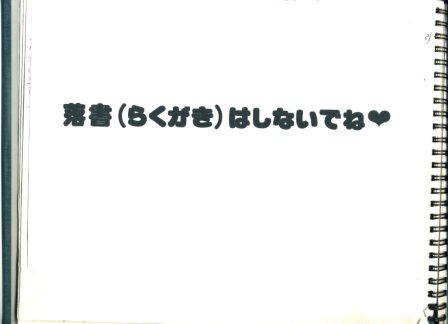 落書(らくがき)はしないでね❤